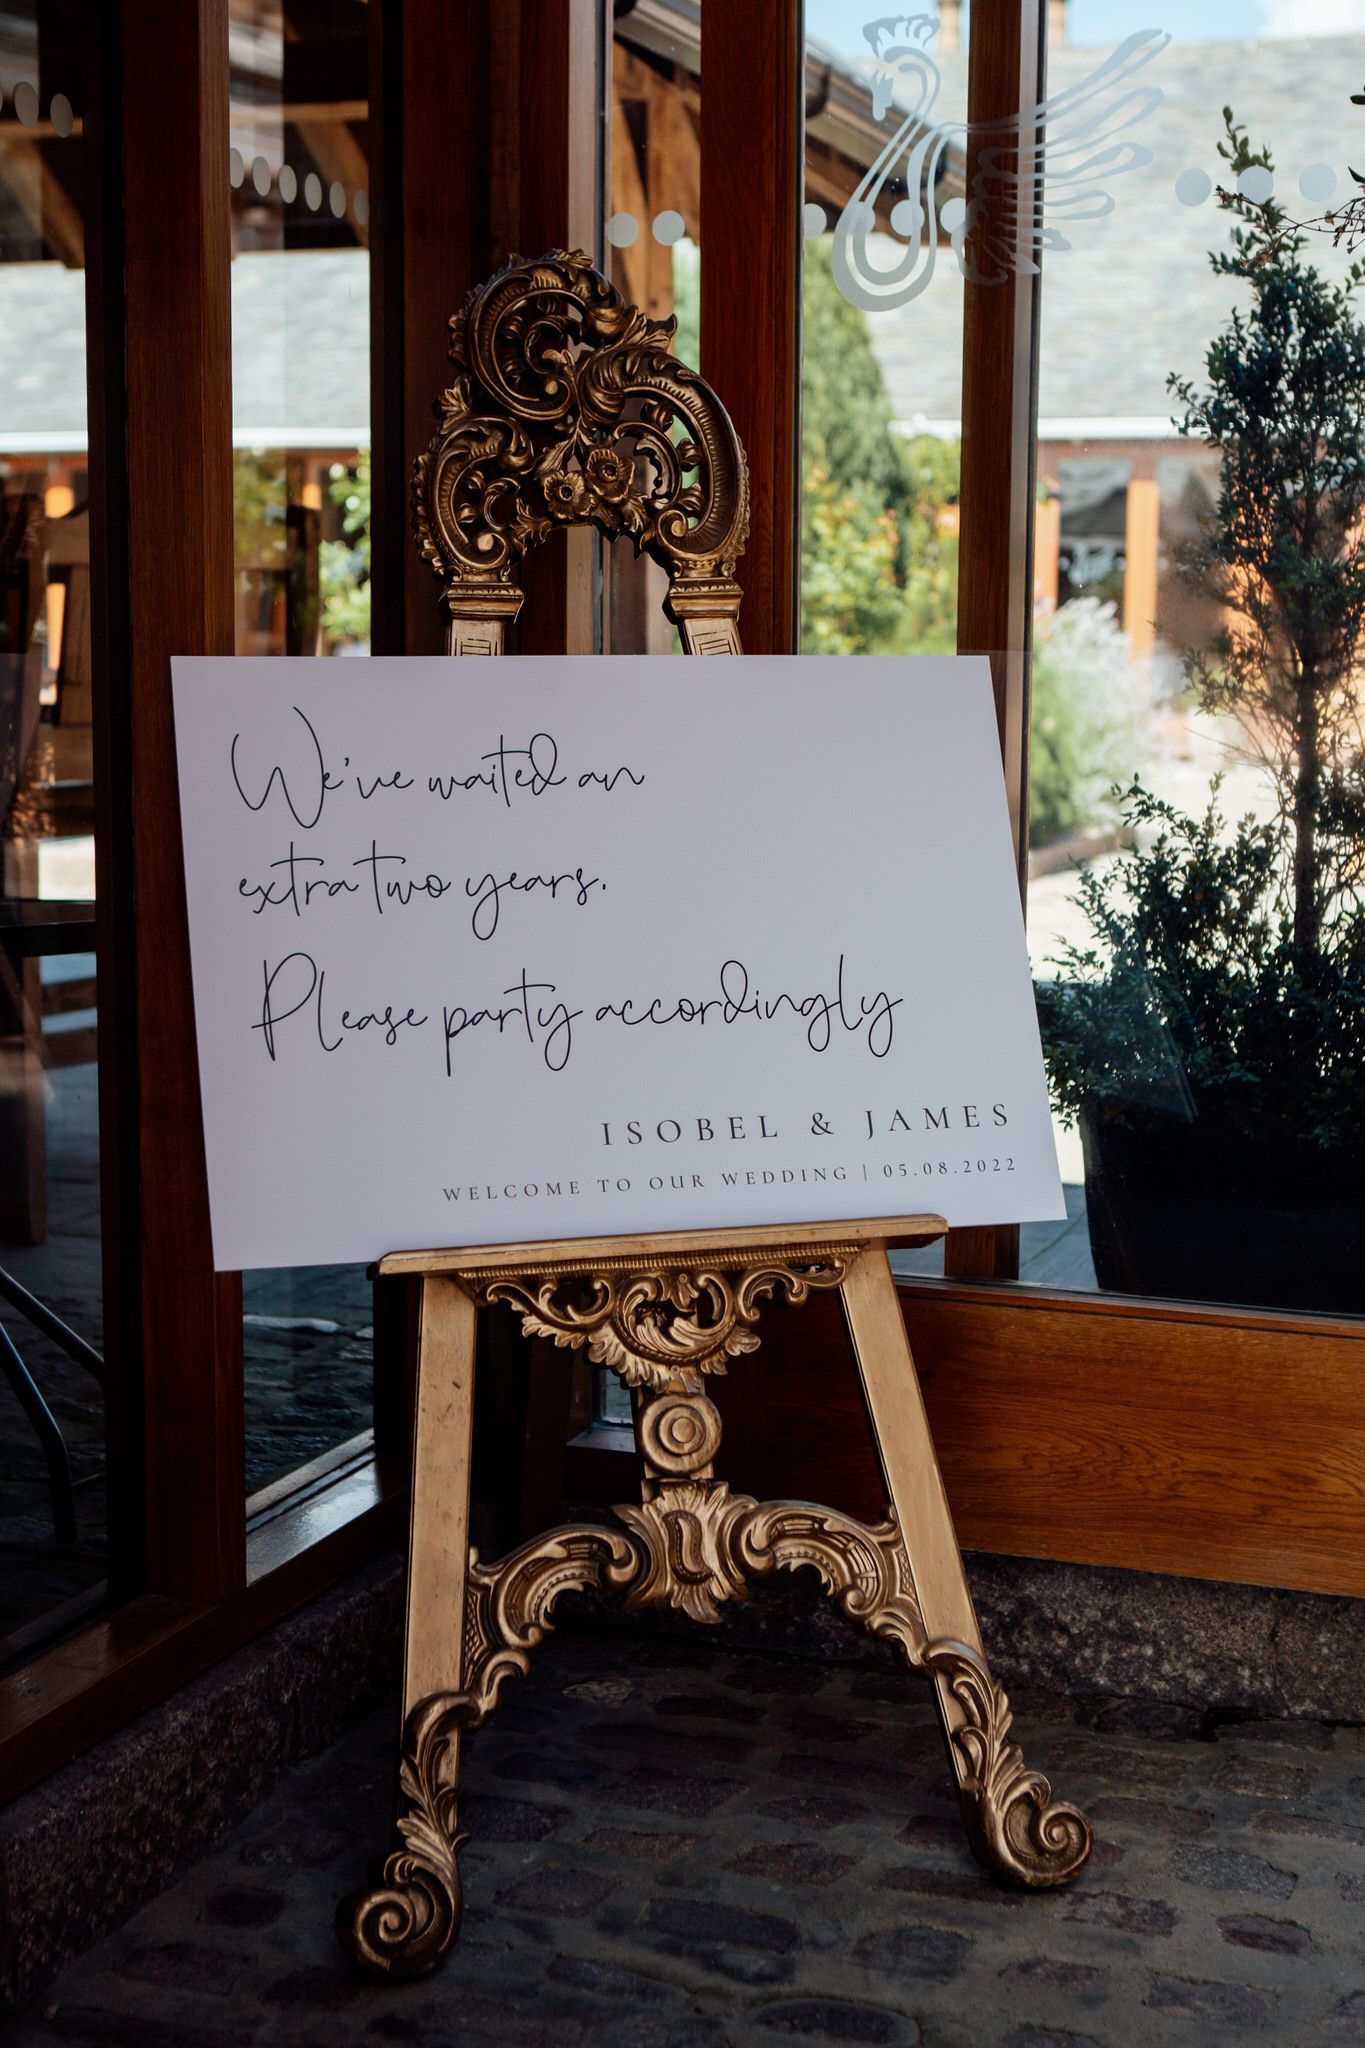 We've waited an
extra two years.
Please party accordingly
ISOBEL & JAMES
WELCOME TO OUR WEDDING | 05.08.2022